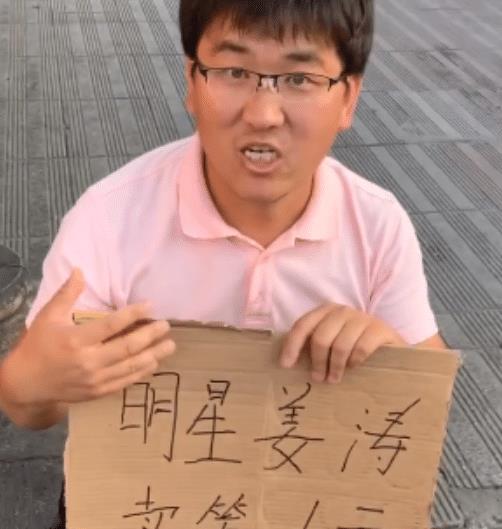 明星姜涛
卖